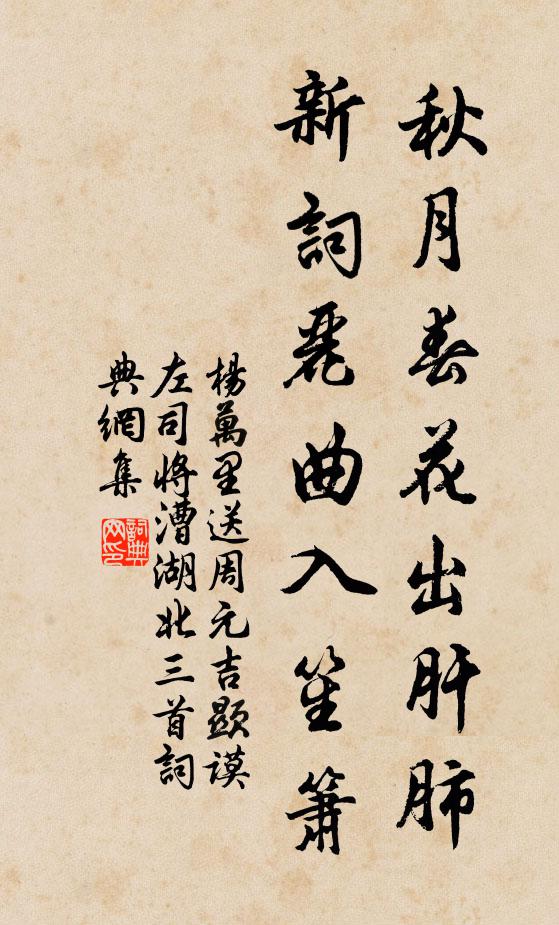 秋月春花出肝肺
新詞麗曲入笙簫
楊萬里送周元吉顯謨
左司將漕湖北三首詞
典網集
詞典
网印